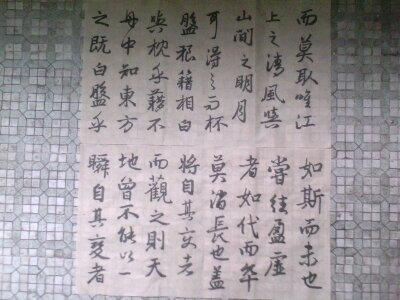 而莫取唯江
上之清風與
山間之明月
可得之而杯
盤狼籍相白
與枕乎藉不
舟中知東方
之既白盤乎
如斯而未也
嘗往盈虛
者如代而卒
莫消長也蓋
將自其变者
而觀之則天
地曾不能以一
瞬自其變者